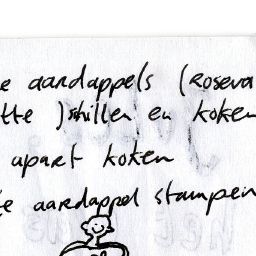 e aardappels (Roseva
tte ) schillen en koken
apart koken
e aardappel stampen